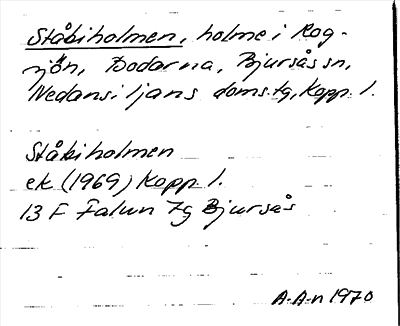 Ståbiholmen, holme i Rog-
sjön, Dodarna, Bjursås sn,
Nedansiljans doms.tg, Kopp. l.
Ståbiholmen
ek (1969) Kopp l.
13 F Falun 7g Bjursås
A-A-n 1970